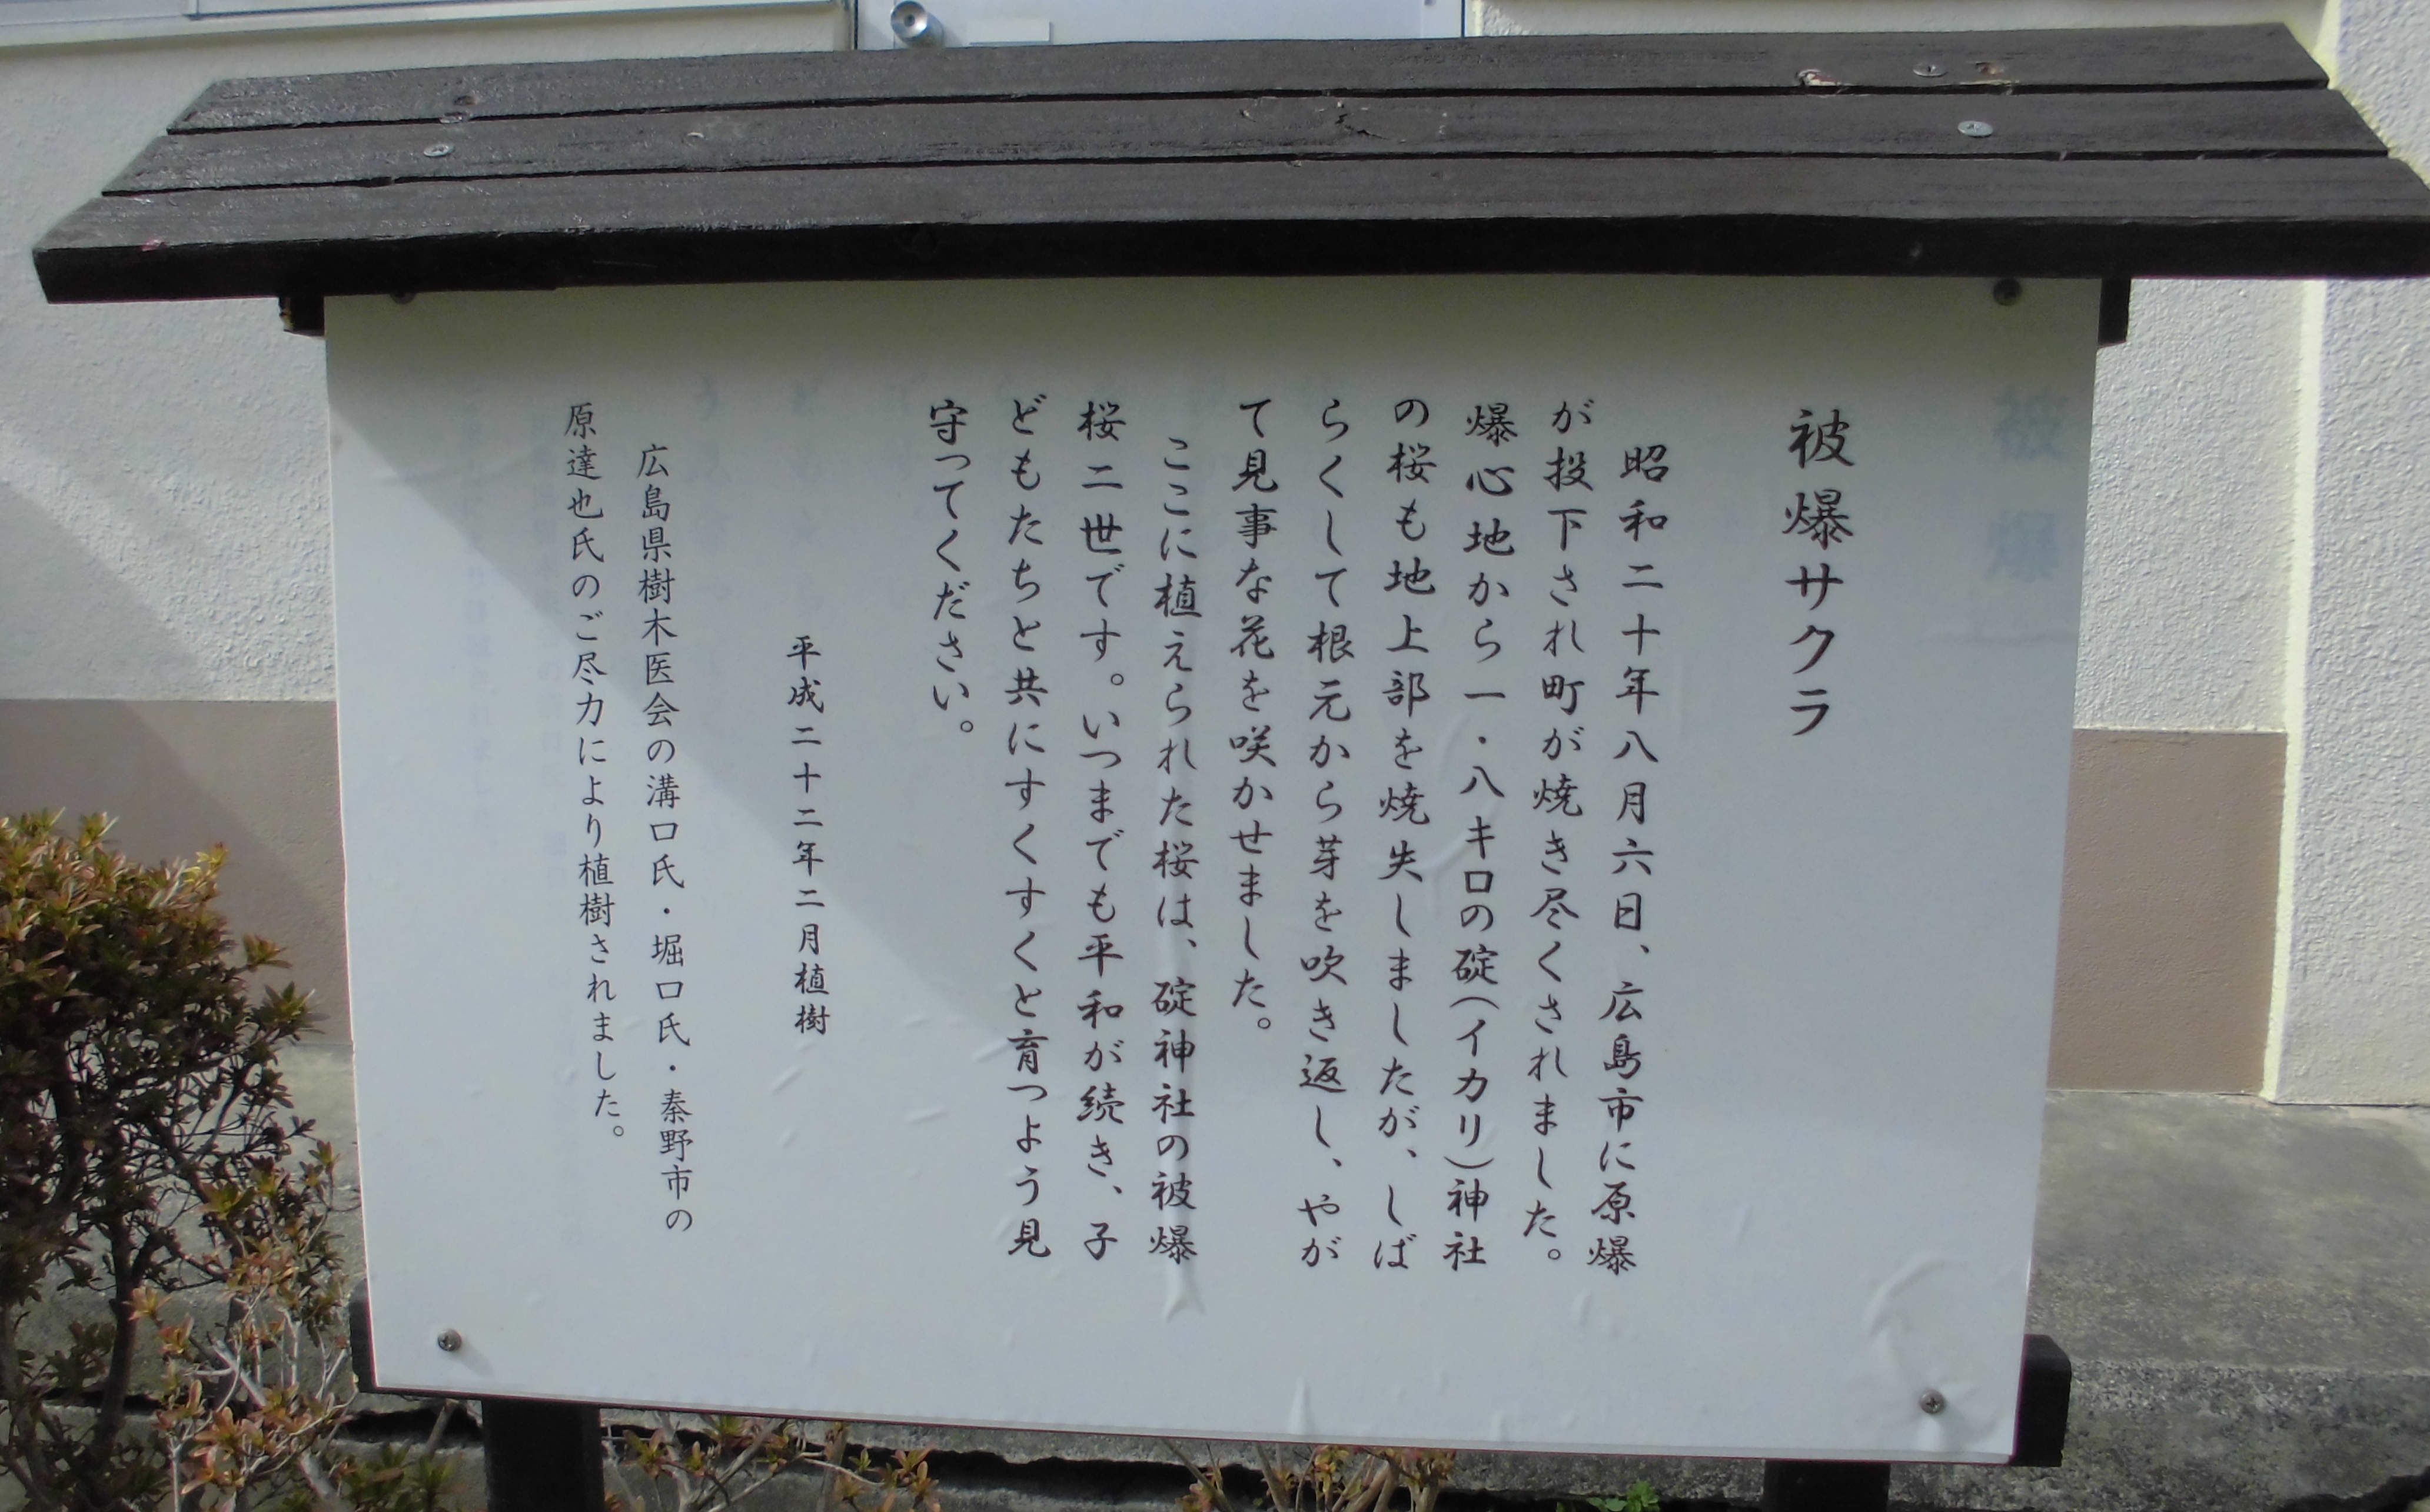 被爆サクラ
昭和二十年八月六日、広島市に原爆
が投下され町が焼き尽くされました。
爆心地から一・八キロの碇(イカリ)神社
の桜も地上部を焼失しましたが、しば
らくして根元から芽を吹き返し、やが
て見事な花を咲かせました。
ここに植えられた桜は、碇神社の被爆
桜二世です。いつまでも平和が続き、子
どもたちと共にすくすくと育つよう見
守ってください。
平成二十二年二月植樹
広島県樹木医会の溝口氏・堀口氏・秦野市の
原達也氏のご尽力により植樹されました。